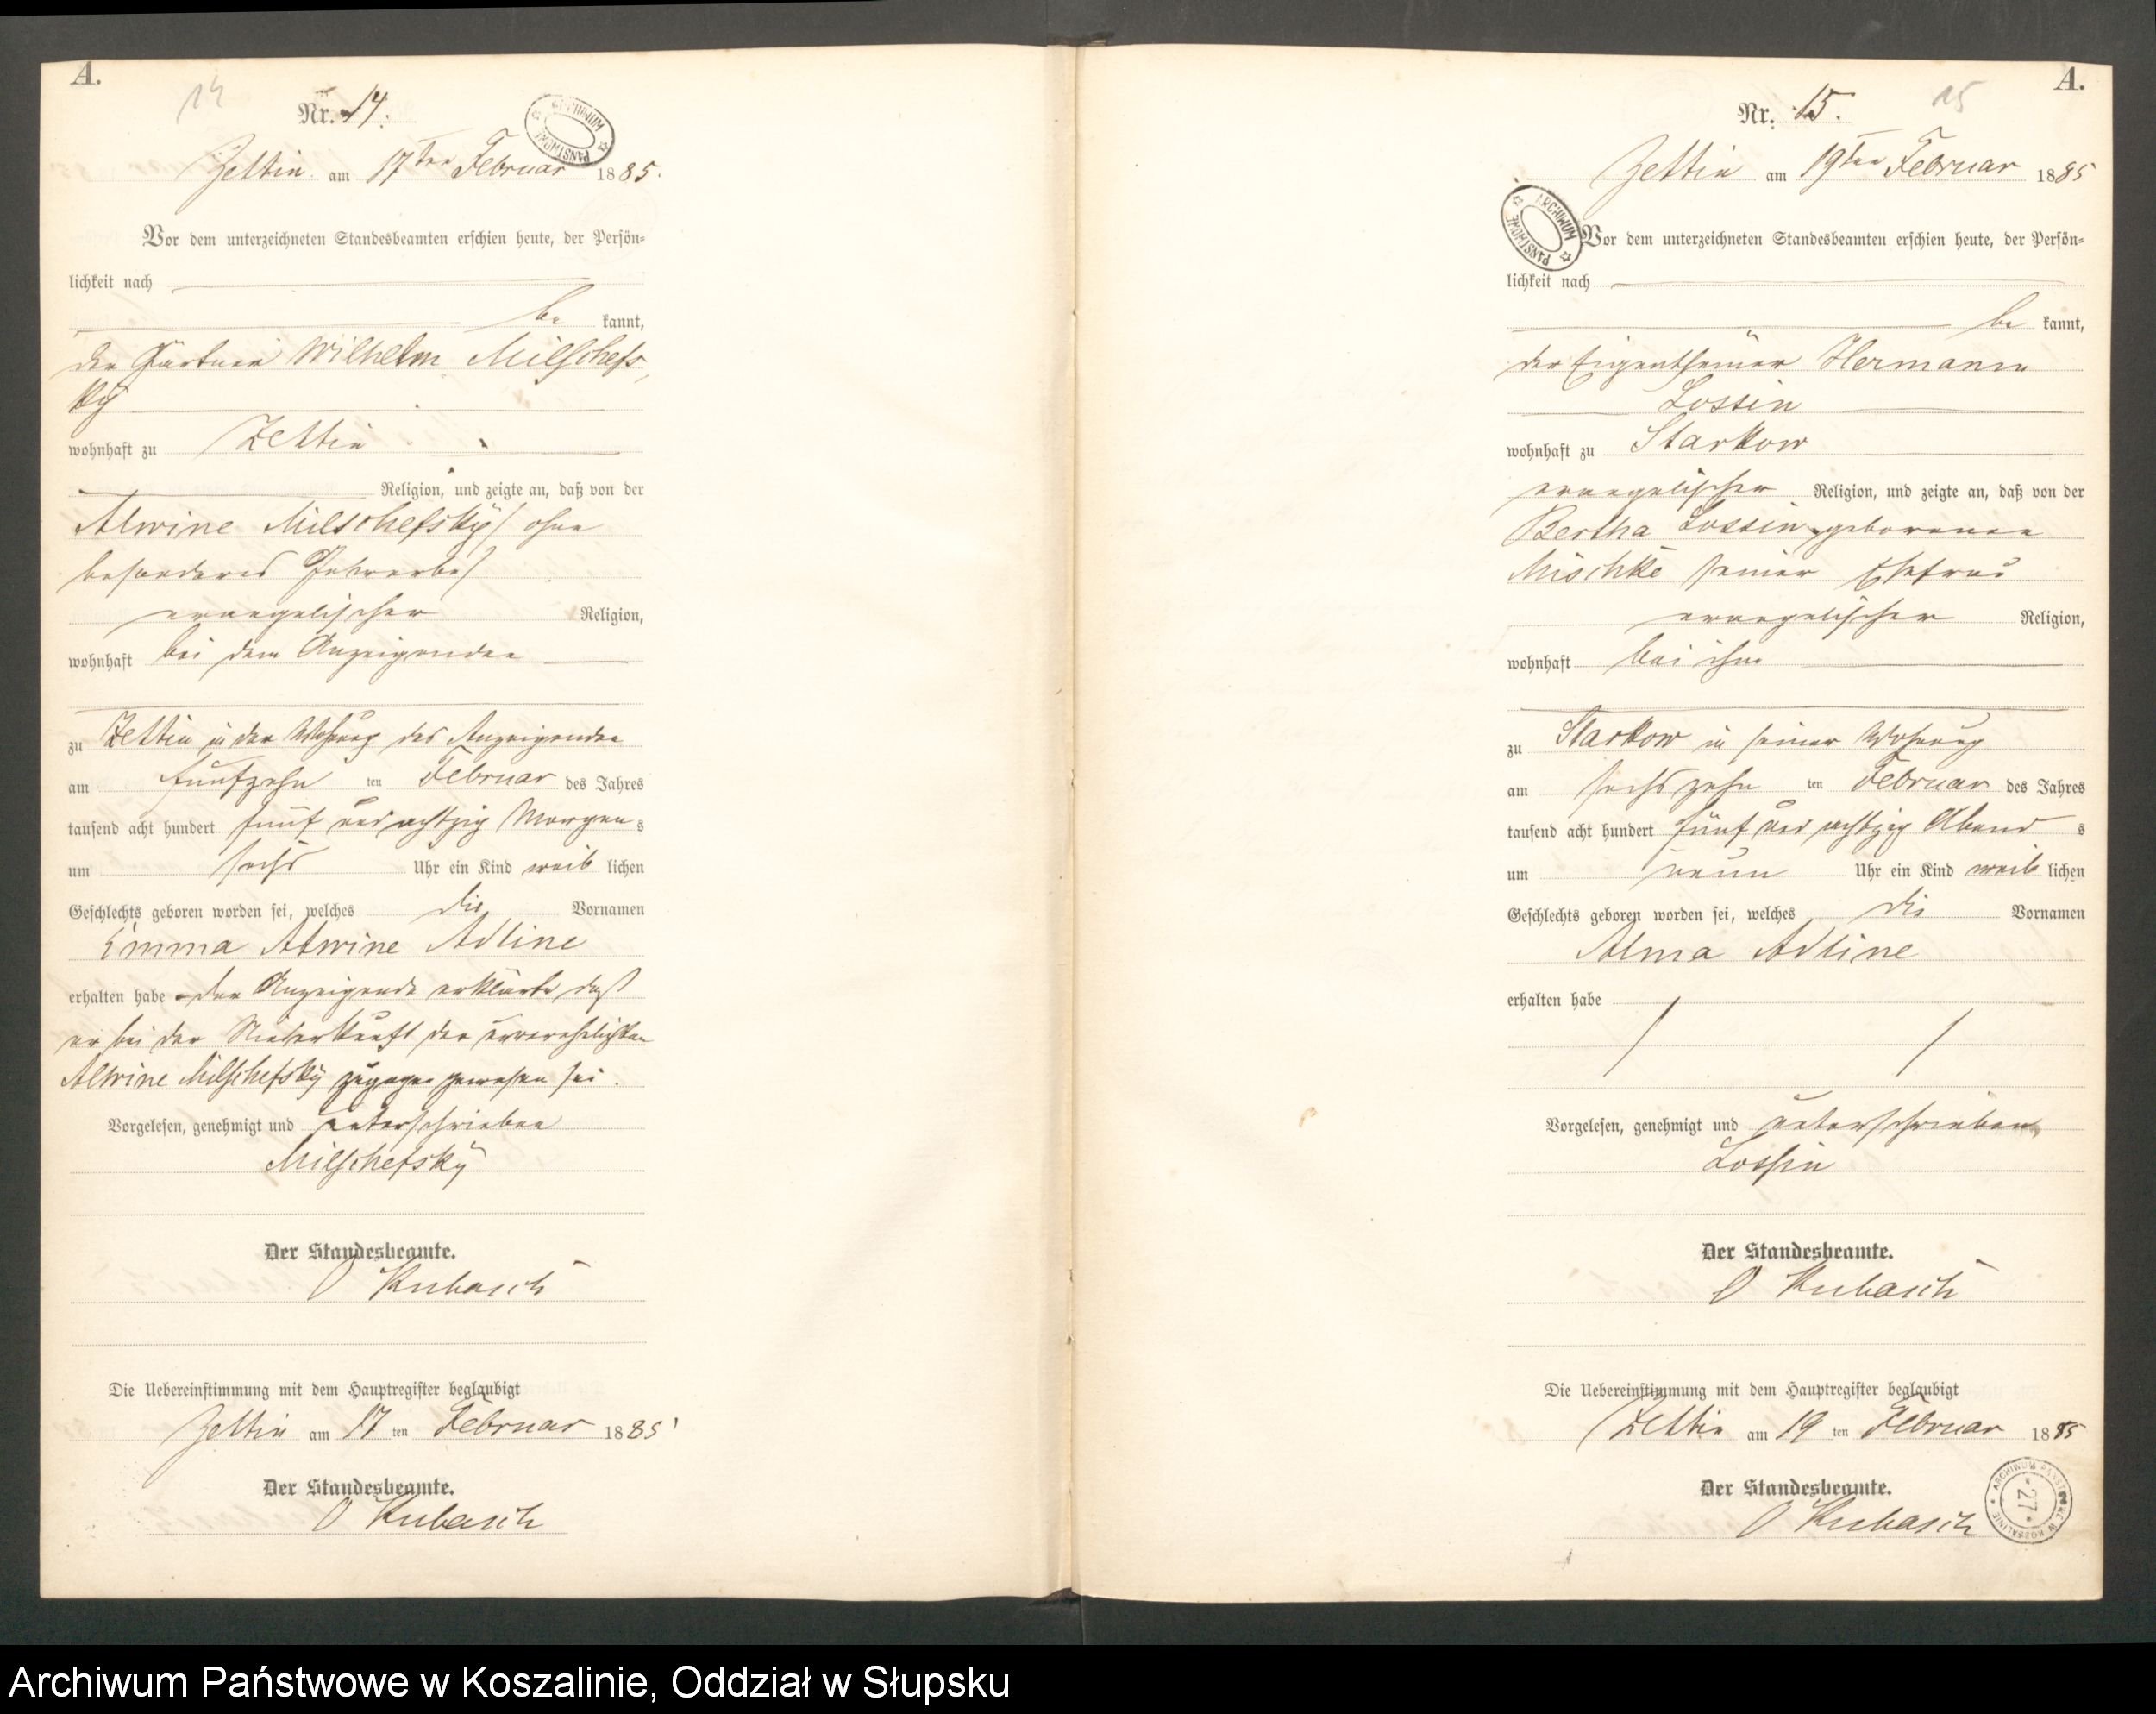 A.
14
Nr. 14.
ARCHIWUM PAŃSTWOWE
Zettin am 17ten Februar 1885.
Vor dem unterzeichneten Standesbeamten erschien heute, der Persön-
lichkeit nach
be kannt,
der Gärtner Wilhelm Milschefs
ky
wohnhaft zu Zettin
Religion, und zeigte an, daß von der
Alwine Milschefsky / ohne
besonderes Gewerbe /
evangelischer Religion,
wohnhaft bei dem Anzeigenden
zu Zettin in der Wohnung des Anzeigenden
am fünfzehn ten Februar des Jahres
tausend acht hundert fünf und achtzig Morgen s
um sechs Uhr ein Kind weib lichen
Geschlechts geboren worden sei, welches die Vornamen
Emma Alwine Adline
erhalten habe der Anzeigende erklärte, daß
er bei der Niederkunft der unverehelichten
Alwine Milschefsky zugegen gewesen sei.
Vorgelesen, genehmigt und unterschrieben
Milschefsky
Der Standesbeamte.
O Kubasch
Die Uebereinstimmung mit dem Hauptregister beglaubigt
Zettin am 17 ten Februar 1885
Der Standesbeamte.
O Kubasch
A.
15
Nr. 15.
Zettin am 19ten Februar 1885
ARCHIWUM PAŃSTWOWE
Vor dem unterzeichneten Standesbeamten erschien heute, der Persön-
lichkeit nach
be kannt,
der Eigenthümer Hermann
Lossin
wohnhaft zu Starkow
evangelischer Religion, und zeigte an, daß von der
Bertha Lossin geborenen
Mischke seiner Ehefrau
evangelischer Religion,
wohnhaft bei ihm
zu Starkow in seiner Wohnung
am sechszehn ten Februar des Jahres
tausend acht hundert fünf und achtzig Abend s
um neun Uhr ein Kind weib lichen
Geschlechts geboren worden sei, welches die Vornamen
Alma Adline
erhalten habe
Vorgelesen, genehmigt und unterschrieben
Lossin
Der Standesbeamte.
O Kubasch
Die Uebereinstimmung mit dem Hauptregister beglaubigt
Zettin am 19 ten Februar 1885
Der Standesbeamte.
O Kubasch
ARCHIWUM PAŃSTWOWE W KOSZALINIE
* 27 *
Archiwum Państwowe w Koszalinie, Oddział w Słupsku